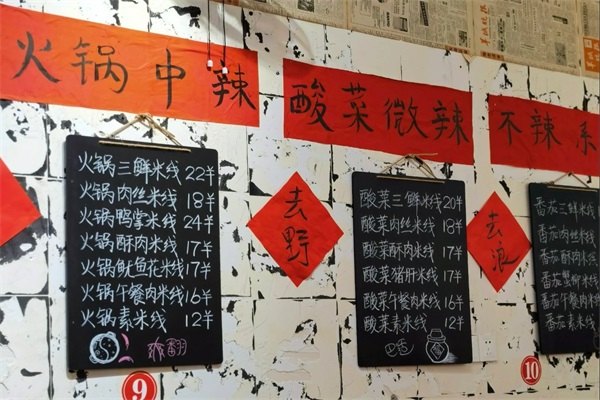 火锅中辣
酸菜微辣
不辣系
火锅三鲜米线 22半
火锅肉丝米线 18半
火锅鸭掌米线 24半
火锅酥肉米线 17半
火锅鱿鱼花米线 17半
火锅午餐肉米线 16半
火锅素米线 12半
爽翻
9
去野
酸菜三鲜米线 20半
酸菜肉丝米线 18半
酸菜酥肉米线 17半
酸菜猪肝米线 17半
酸菜午餐肉米线 16半
酸菜素米线 12半
去浪
番茄三鲜米线
番茄肉丝米线
番茄酥肉米线
番茄蟹柳米线
番茄午餐肉米
番茄素米线
10